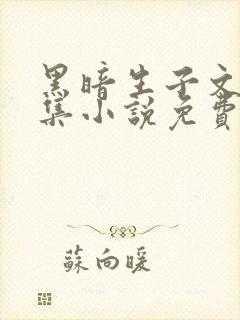 黑暗生子文
集小說免費
蘇向暖